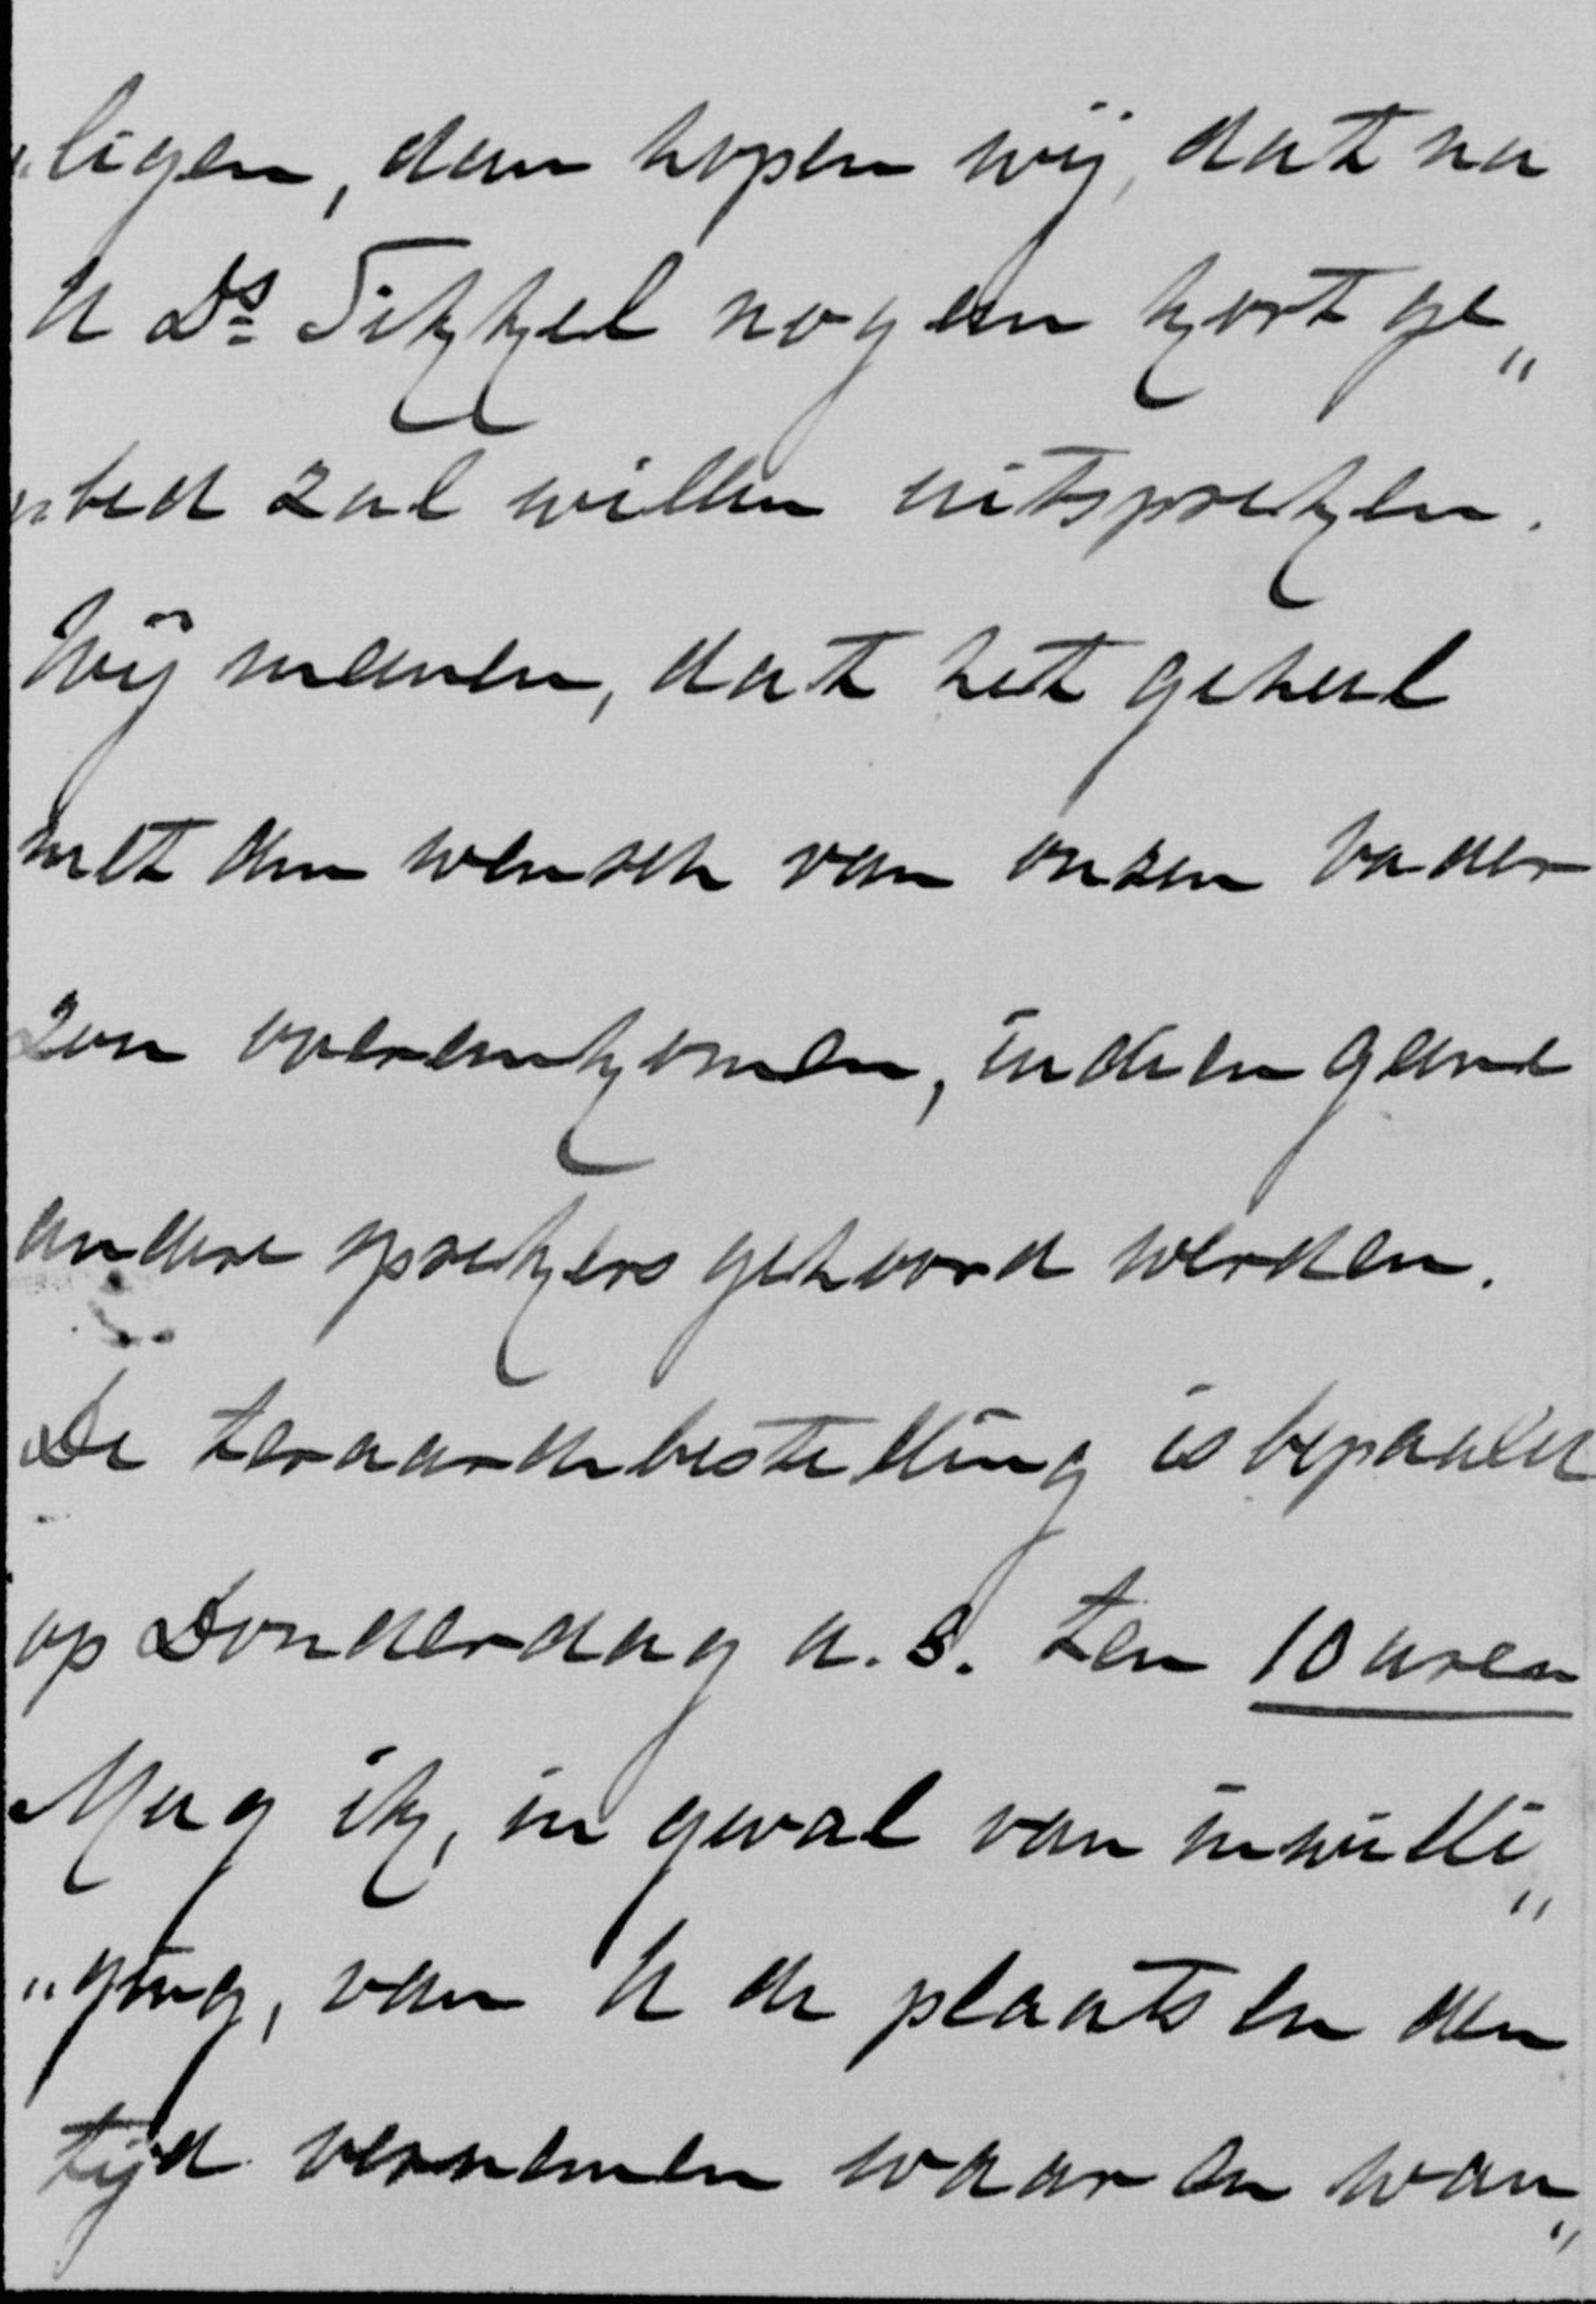 „ligen, dan hopen wij, dat na
U Ds. Sikkel nog een kort ge„
„bed zal willen uitspreken.
Wij meenen, dat het geheel
met den wensch van onzen vader
zou overeenkomen, indien geene
andere sprekers gehoord werden.
De teraardebestelling is bepaald
op Donderdag a.s. ten 10 uren
Mag ik, in geval van inwilli„
„ging, van U de plaats en den
tijd vernemen waar en wan„